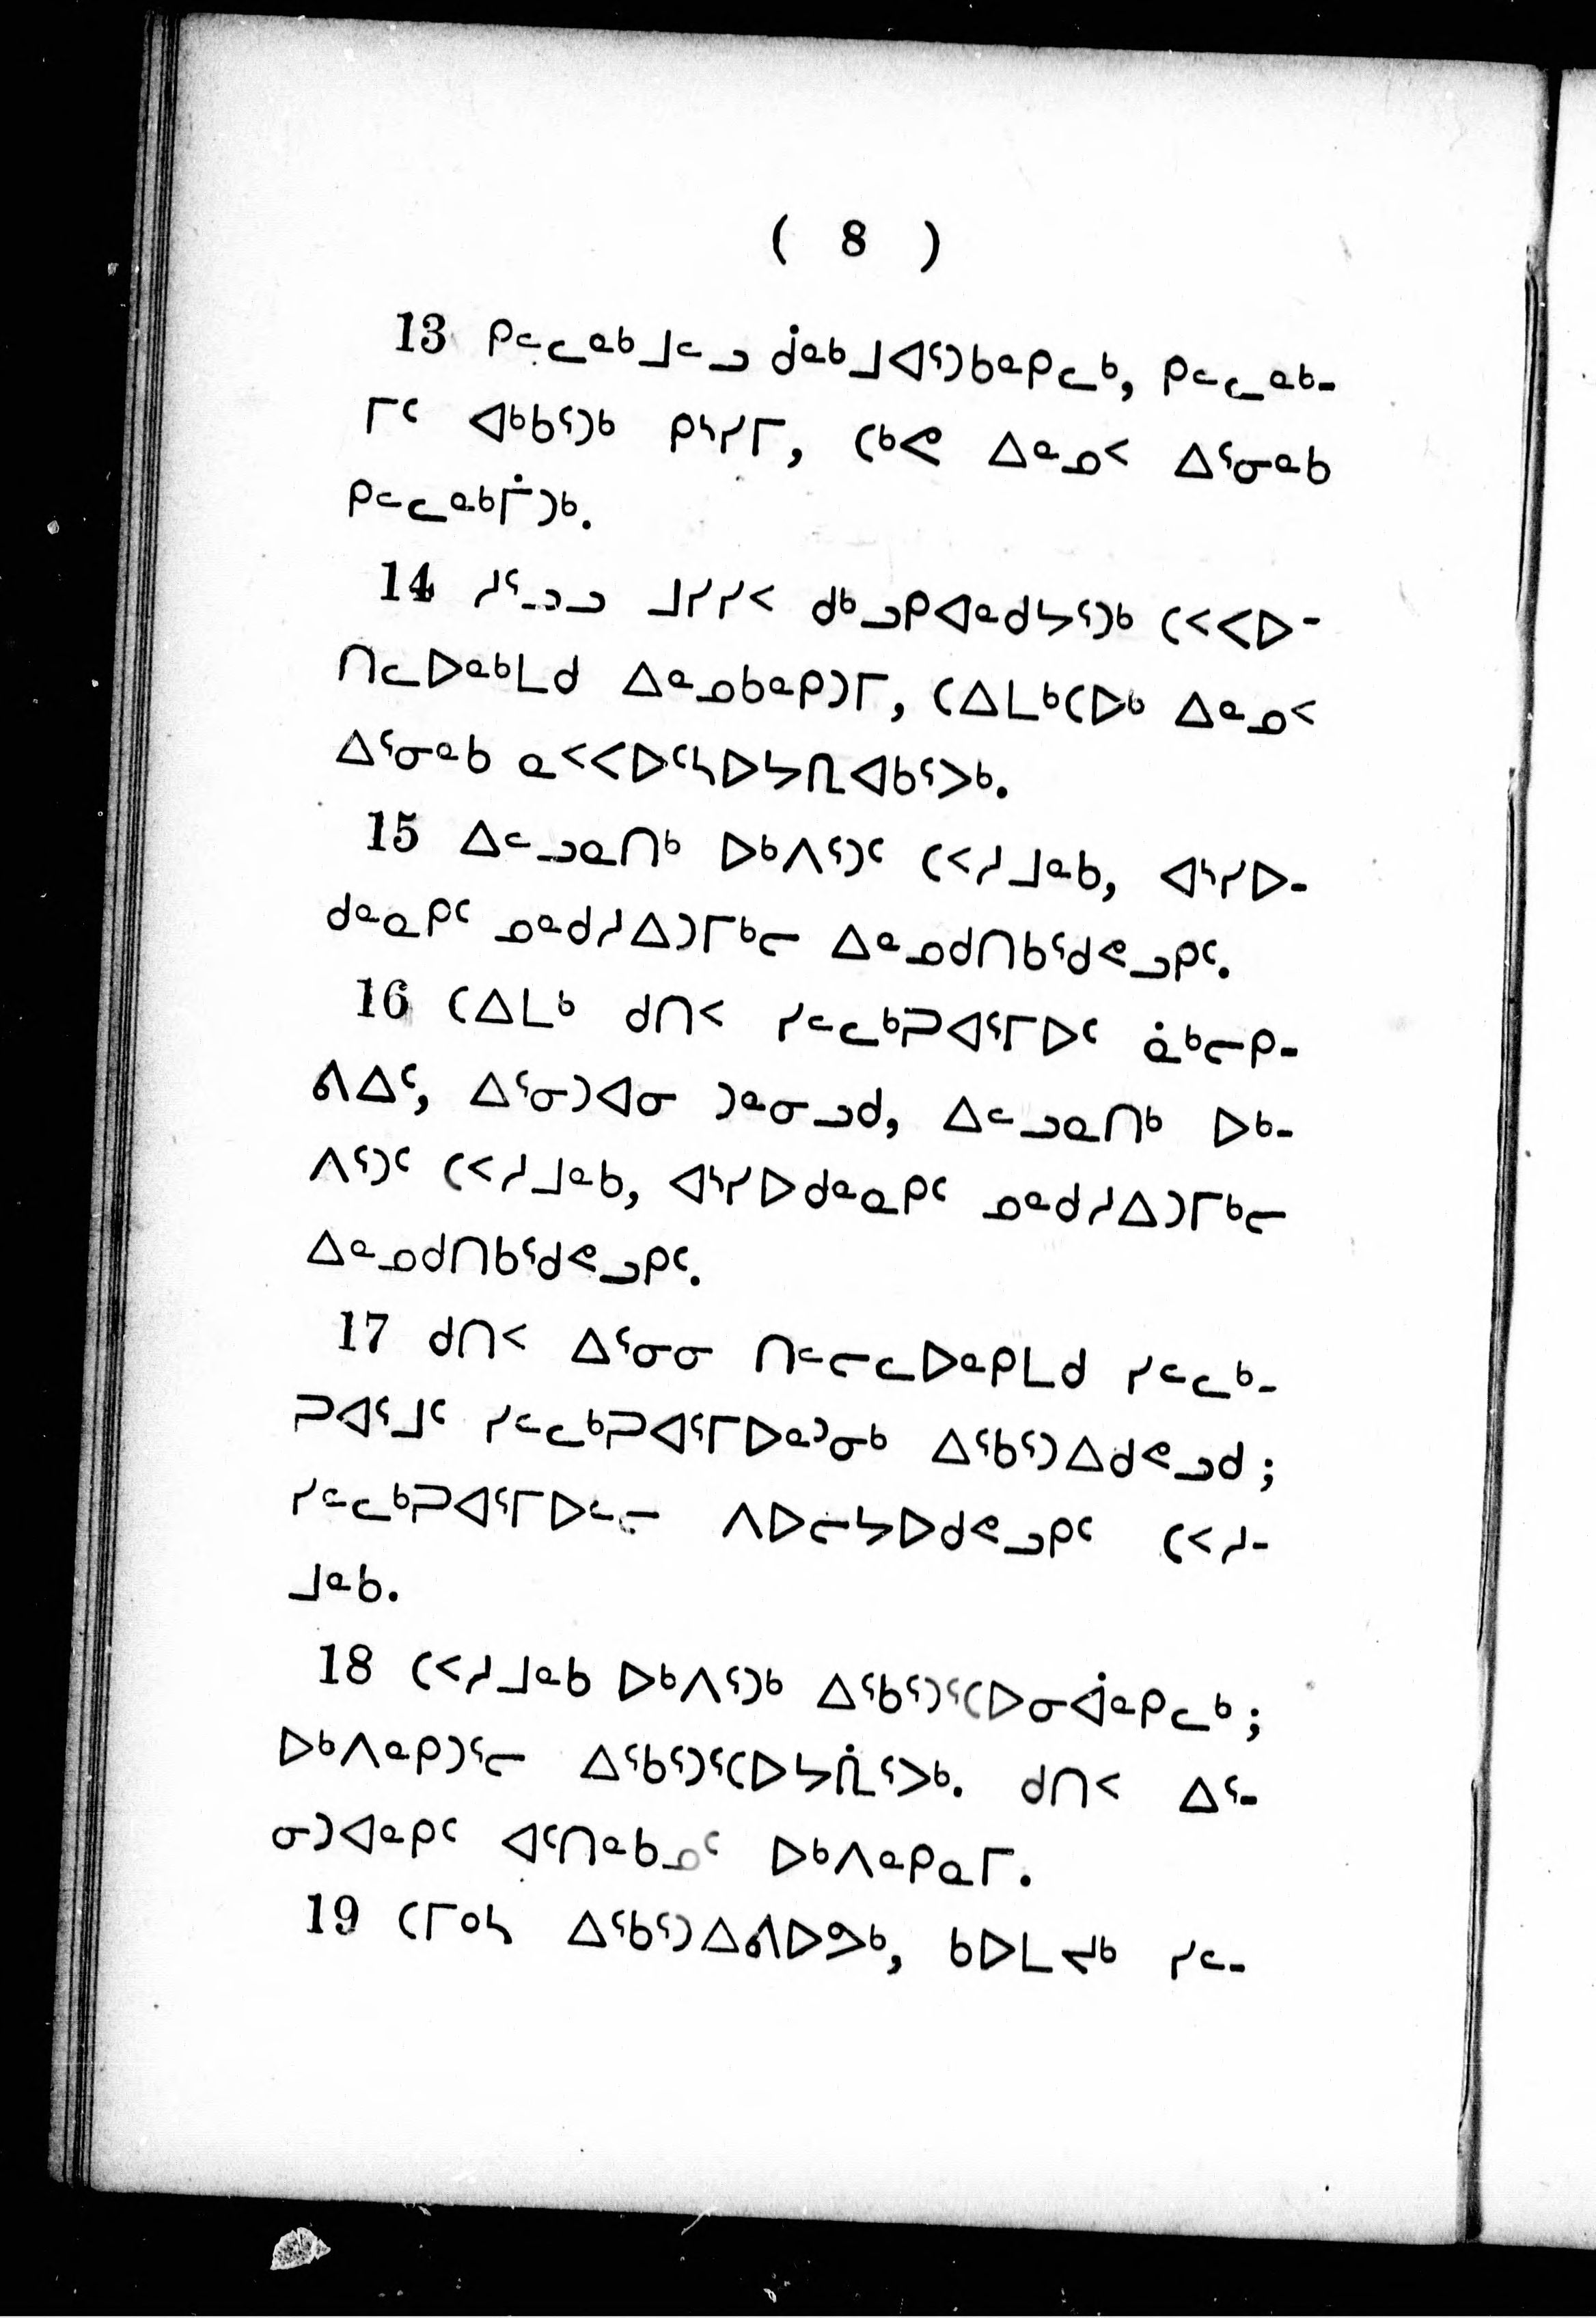 ( 8 )
13 ᑭᓪᓚᓇᒃᒧᓪᓗ ᑰᓇᒃᒧᐊᕐᑐᑲᓐᑭᓚᒃ, ᑭᓪᓚᓇᒃ-
ᒥᑦ ᐊᒃᑲᕐᑐᒃ ᑭᔅᓯᒥ, ᑕᒃᕙ ᐃᓐᓄᑉ ᐃᕐᓂᓐᑲ
ᑭᓪᓚᓇᒃᒦᑐᒃ.
14 ᓱᕐᓗᓗ ᒧᓯᓯᑉ ᑯᒃᓗᑭᐊᓐᑯᔭᕐᑐᒃ ᑕᑉᐸᐅ-
ᑎᓚᐅᓇᒃᒪᑯ ᐃᓐᓄᑲᓐᑭᑐᒥ, ᑕᐃᒪᒃᑕᐅᒃ ᐃᓐᓄᑉ
ᐃᕐᓂᓐᑲ ᓇᑉᐸᐅᑦᓴᐅᔭᕆᐊᑲᕐᐳᒃ.
15 ᐃᓪᓗᓇᑎᒃ ᐅᒃᐱᕐᑐᑦ ᑕᑉᓱᒧᓐᑲ, ᐊᔅᓯᐅ-
ᑯᓐᓇᑭᑦ ᓄᓐᑯᓱᐃᑐᒥᒃᓕ ᐃᓐᓄᑯᑎᑲᕐᑯᕙᓗᑭᑦ.
16 ᑕᐃᒪᒃ ᑯᑎᑉ ᓯᓪᓚᒃᑐᐊᕐᒥᐅᑦ ᓈᒃᓕᑭ-
ᕕᐃᑦ, ᐃᕐᓂᑐᐊᓂ ᑐᓐᓂᓗᑯ, ᐃᓪᓗᓇᑎᒃ ᐅᒃ-
ᐱᕐᑐᑦ ᑕᑉᓱᒧᓐᑲ, ᐊᔅᓯᐅᑯᓐᓇᑭᑦ ᓄᓐᑯᓱᐃᑐᒥᒃᓕ
ᐃᓐᓄᑯᑎᑲᕐᑯᕙᓗᑭᑦ.
17 ᑯᑎᑉ ᐃᕐᓂᓂ ᑎᓪᓕᓚᐅᓐᑭᒪᑯ ᓯᓪᓚᒃ-
ᑐᐊᕐᒧᑦ ᓯᓪᓚᒃᑐᐊᕐᒥᐅᓐᓂᒃ ᐃᕐᑲᕐᑐᐃᑯᕙᓗᑯ;
ᓯᓪᓚᒃᑐᐊᕐᒥᐅᓪᓕ ᐱᐅᓕᔭᐅᑯᕙᓗᑭᑦ ᑕᑉᓱ-
ᒧᓐᑲ.
18 ᑕᑉᓱᒧᓐᑲ ᐅᒃᐱᕐᑐᒃ ᐃᕐᑲᕐᑐᕐᑕᐅᓂᐋᓐᑭᓚᒃ;
ᐅᒃᐱᓐᑭᑐᕐᓕ ᐃᕐᑲᕐᑐᕐᑕᐅᔭᕇᕐᐳᒃ. ᑯᑎᑉ ᐃᕐ-
ᓂᑐᐊᓐᑭᑦ ᐊᑦᑎᓐᑲᓄᑦ ᐅᒃᐱᓐᑭᓇᒥ.
19 ᑕᒥᓐᓴ ᐃᕐᑲᕐᑐᐃᕕᐅᕗᒃ, ᑲᐅᒪᔪᒃ ᓯᓪ-